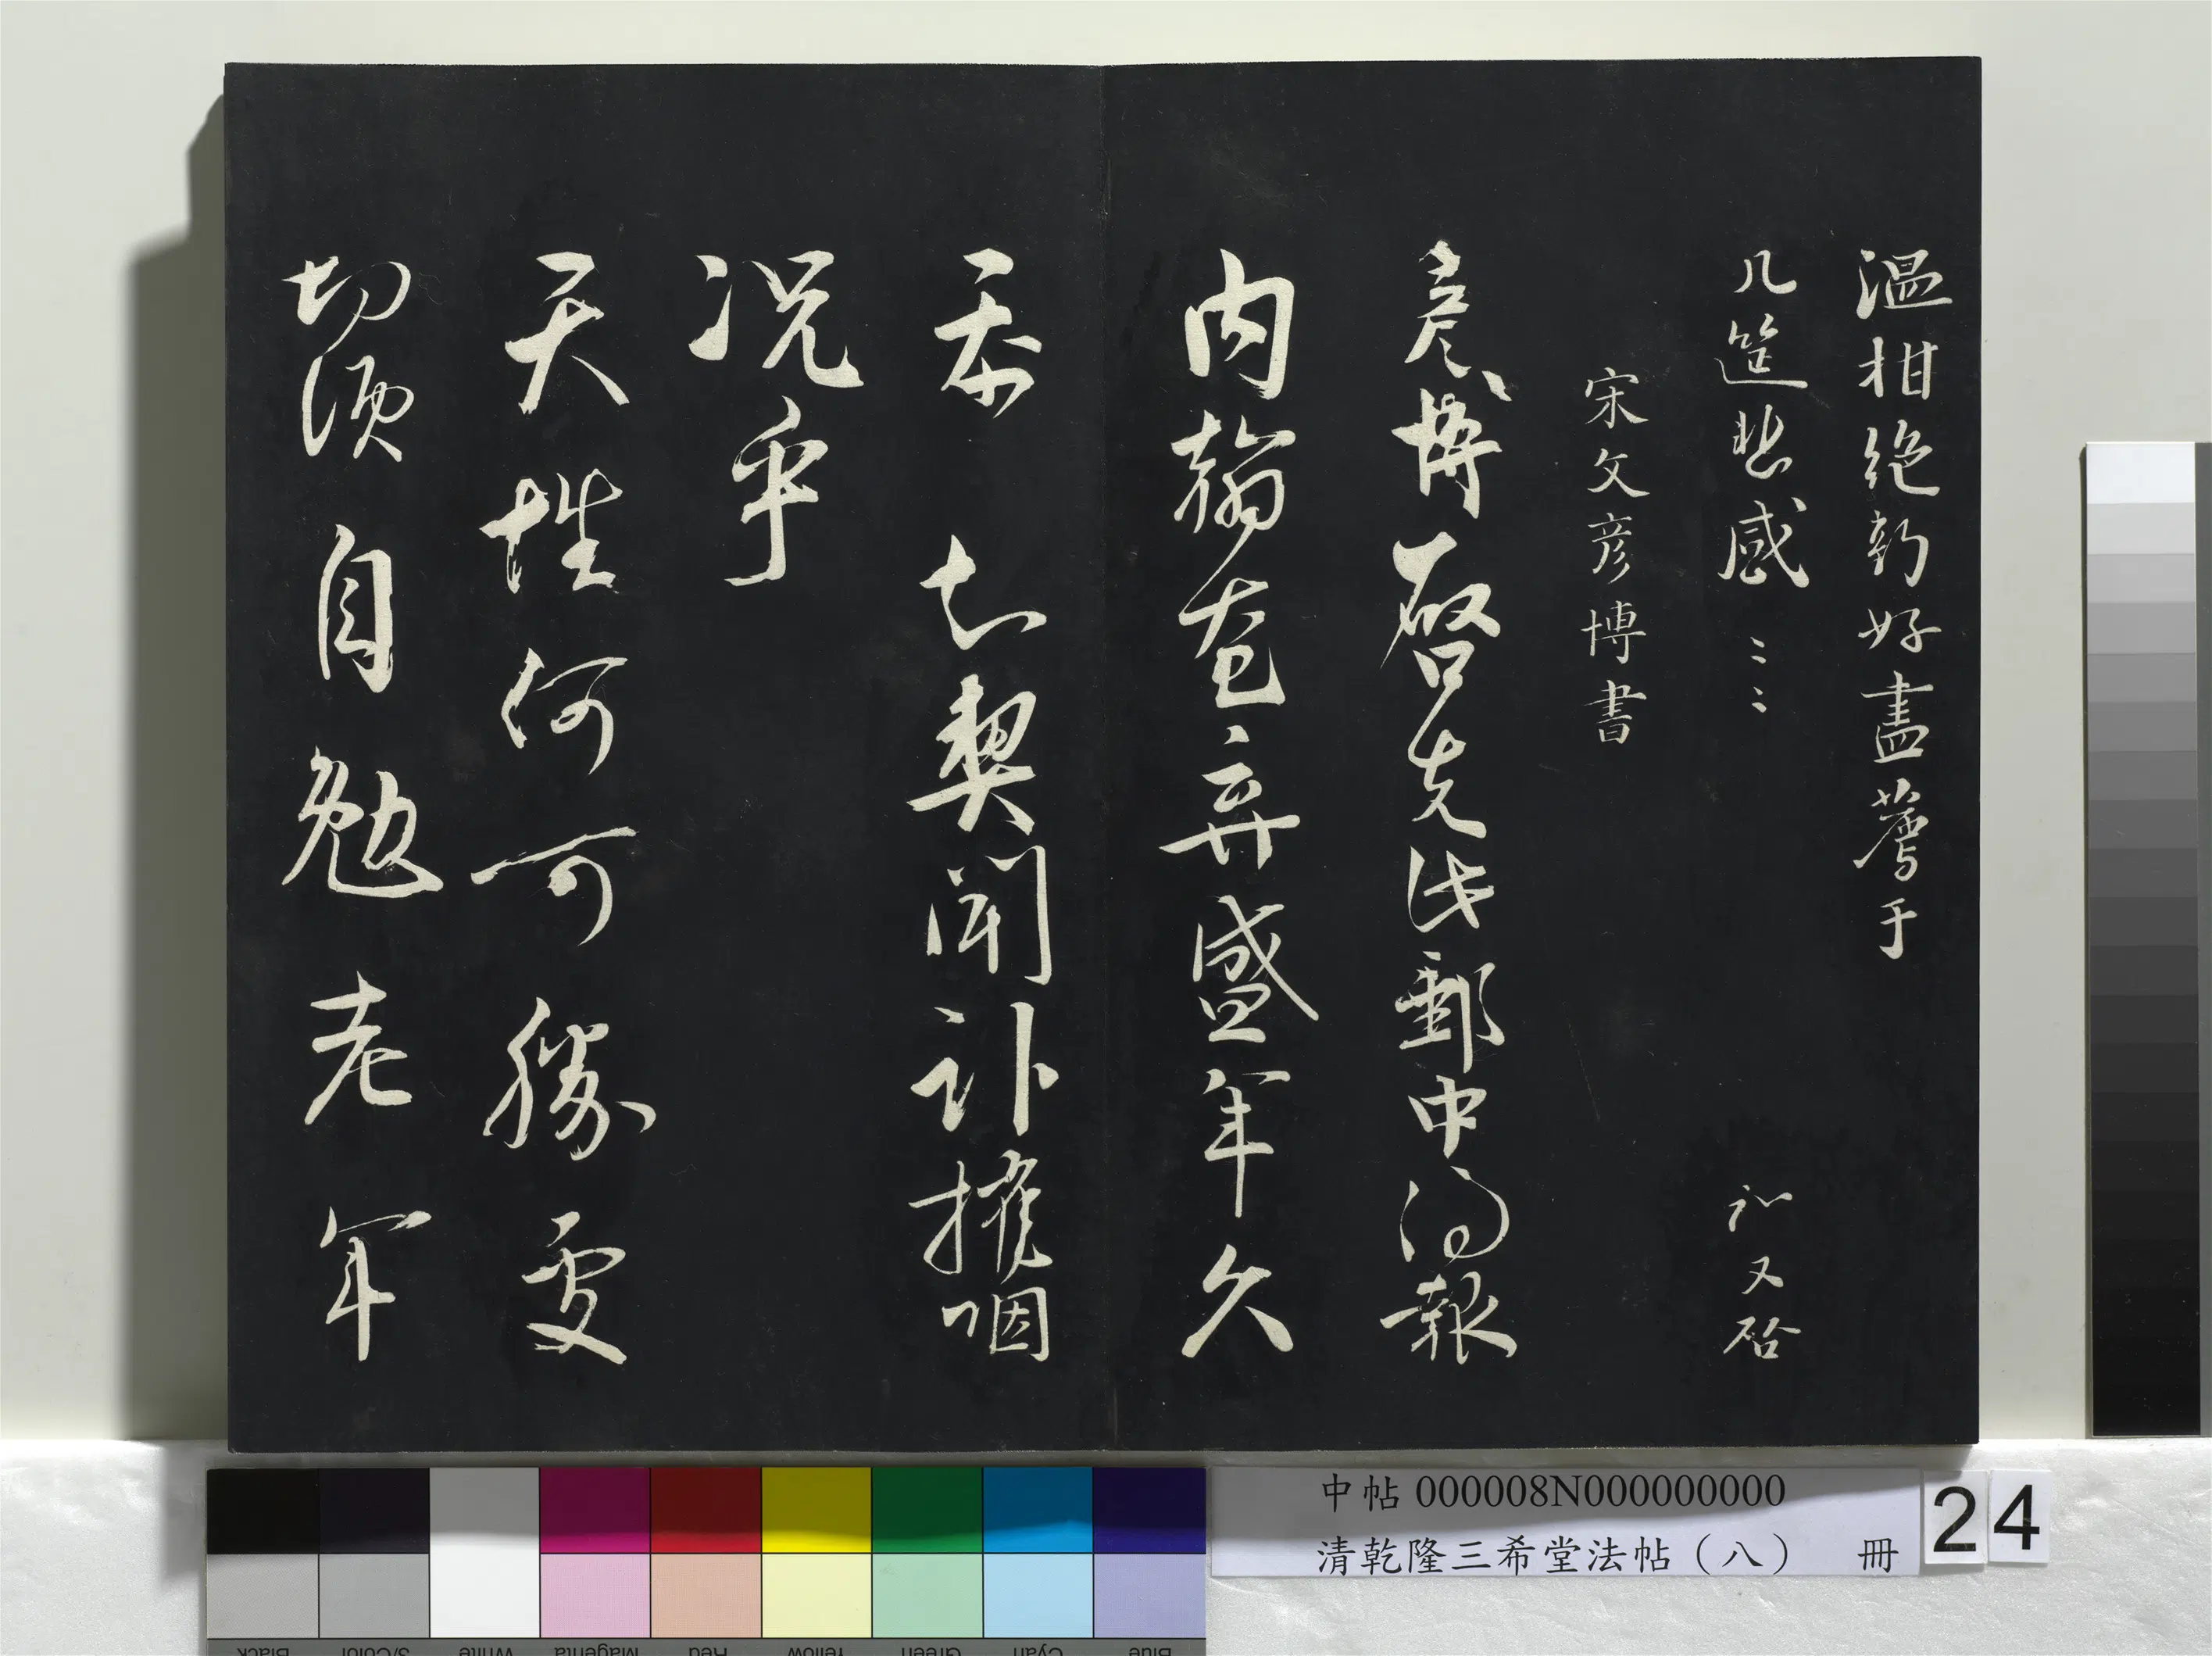 溫柑絕新好盡薦于
几筵悲感〻〻 礼又啓
宋文彥博書
彥博啓先此郵中得報
內翰奄弃盛年久
忝 知契聞訃摧咽
況乎
天性何可勝處
切須自勉老年
中帖 000008N000000000
清乾隆三希堂法帖（八） 冊
24
Black 3/Color White Magenta Red Yellow Green Cyan Blue